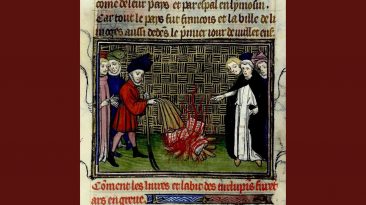 come de leur pays et par espal en lymosin.
Car tout le pays fut francois et la ville de li
moges aussi dedens le pmier iour de iuillet ens
Coment les liures et labit des furet
ars en greue.